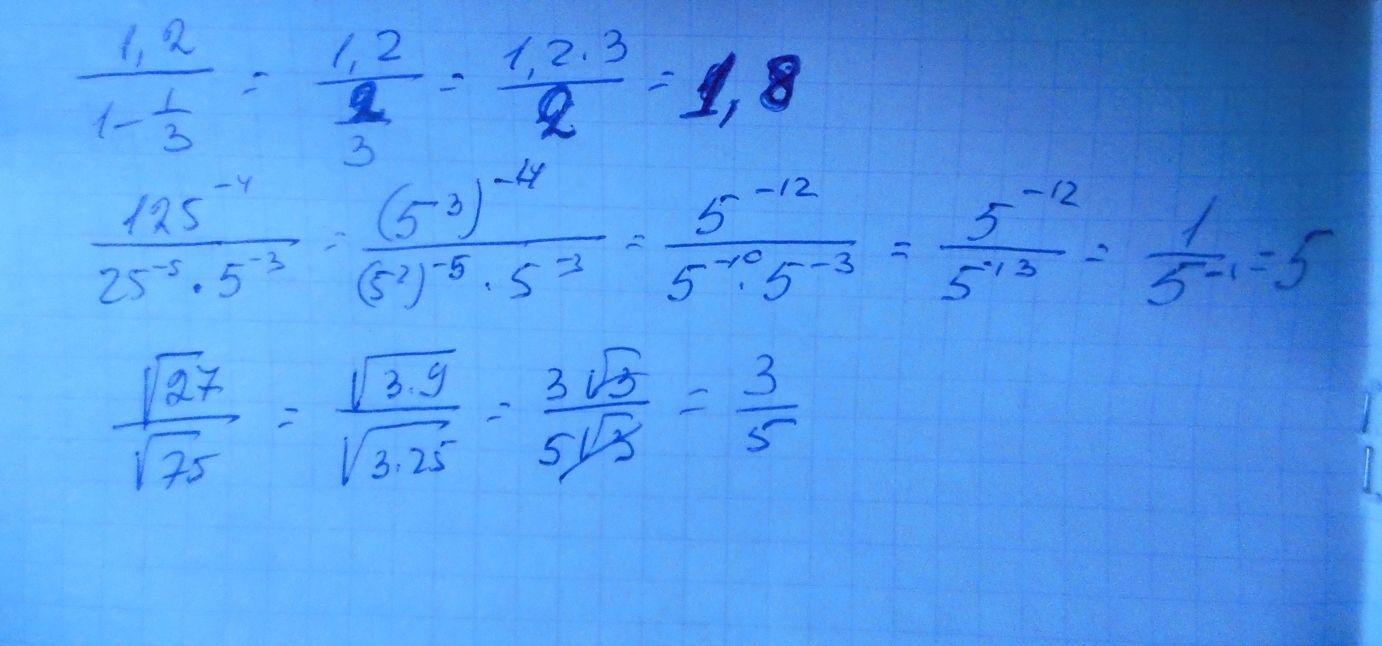 1,2/(1-1/3) = 1,2/(2/3) = (1,2·3)/2 = 1,8
125⁻⁴/(25⁻⁵·5⁻³) = (5³)⁻⁴/((5²)⁻⁵·5⁻³) = 5⁻¹²/(5⁻¹⁰·5⁻³) = 5⁻¹²/5⁻¹³ = 1/5⁻¹ = 5
√27/√75 = √(3·9)/√(3·25) = 3√3/(5√3) = 3/5